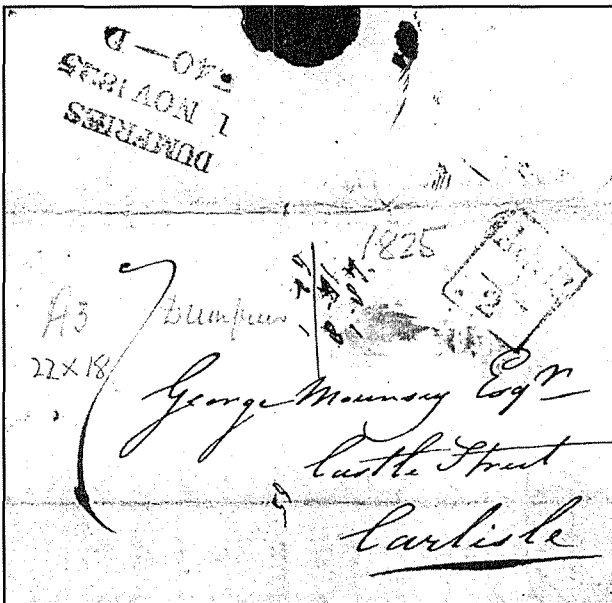 DUMFRIES
1 NOV 1825
540-D
1825
A3
22x18
7
Dumfries
George Mounsey Esqr
Castle Street
Carlisle